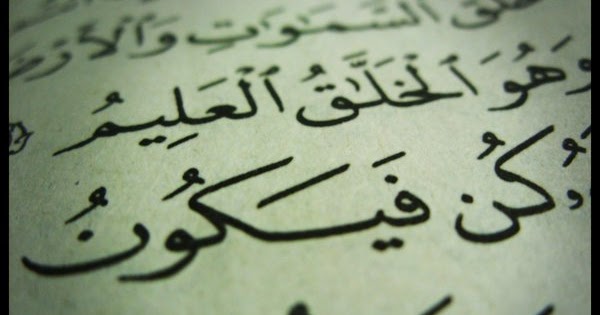 خَلَقَ ٱلسَّمَٰوَٰتِ وَٱلْأَرْضَ
وَهُوَ ٱلْخَلَّٰقُ ٱلْعَلِيمُ
كُن فَيَكُونُ